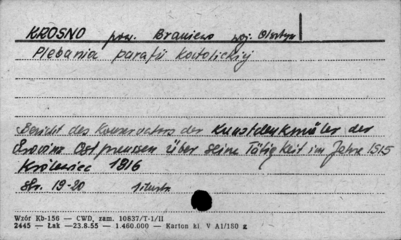 KROSNO pow. Braniewo woj. Olsztyn
Plebania parafii katolickiej
Bericht des Konservators der Kunstdenkmäler der
Provinz Ostpreussen über seine Tätigkeit im Jahre 1515
Królewiec 1916
Str. 19-20 1 ilustr.
Wzór Kb-156 — CWD, zam. 10837/T-1/II
2445 — Łak —23.8.55 — 1.460.000 — Karton kl. V A1/180 g